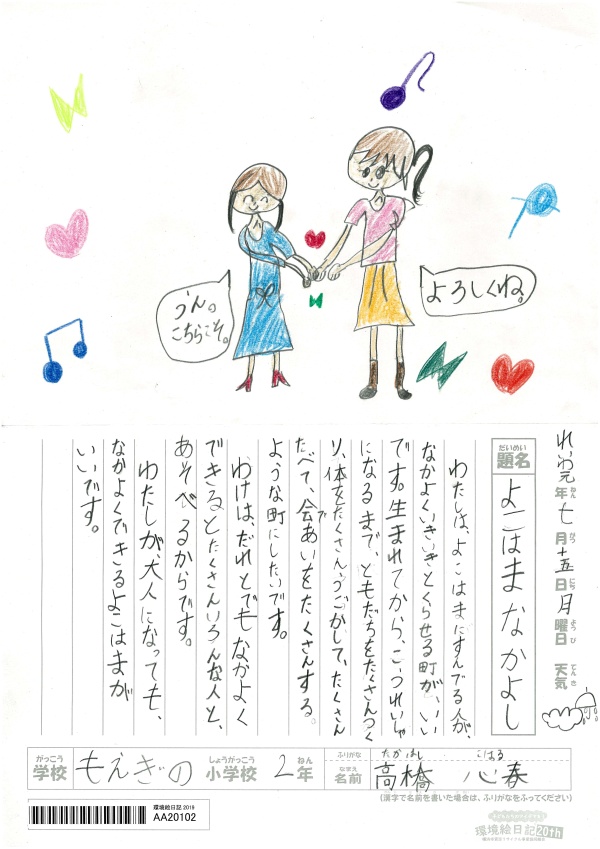 よろしくね。
うん。
こちらこそ。
れい和元年七月十五日月曜日 天気
ねん がつ にち ようび てんき
だいめい
題名
よこはまなかよし
わたしは、よこはまにすんでる人が、
なかよくいきいきとくらせる町が、いい
です。生まれてから、こうれいしゃ
になるまで、ともだちをたくさんつく
り、体をたくさんうごかして、たくさん
たべて、会あいをたくさんする。
で
ような町にしたいです。
わけは、だれとでもなかよく
できるとたくさんいろんな人と、
あそべるからです。
わたしが、大人になっても、
なかよくできるよこはまが
いいです。
がっこう
学校
もえぎの
しょうがっこう
小学校
2
ねん
年
ふりがな
なまえ
名前
たかはし こはる
高橋 心春
(漢字で名前を書いた場合は、ふりがなをふってください)
環境絵日記 2019
AA20102
環境絵日記20th